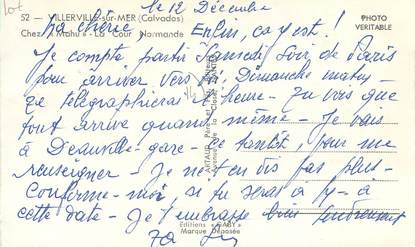 lot
le 12 Décembre
52 - VILLERVILLE-sur-MER (Calvados)
Chez "Mahu" - La Cour Normande
PHOTO
VERITABLE
Ma chérie Enfin, ça y est !
Je compte partir Samedi soir de Paris
pour arriver vers Dimanche matin
Je télégraphierai heure - Tu vois que
tout arrive quand même - Je vais
à Deauville-gare - ce tantôt, pour me
renseigner - Je ne t'en dis pas plus -
Confirme-moi, si tu seras là
cette date - Je t'embrasse bien tendrement
Editions "GABY"
Marque Déposée
ARTAUD Père et